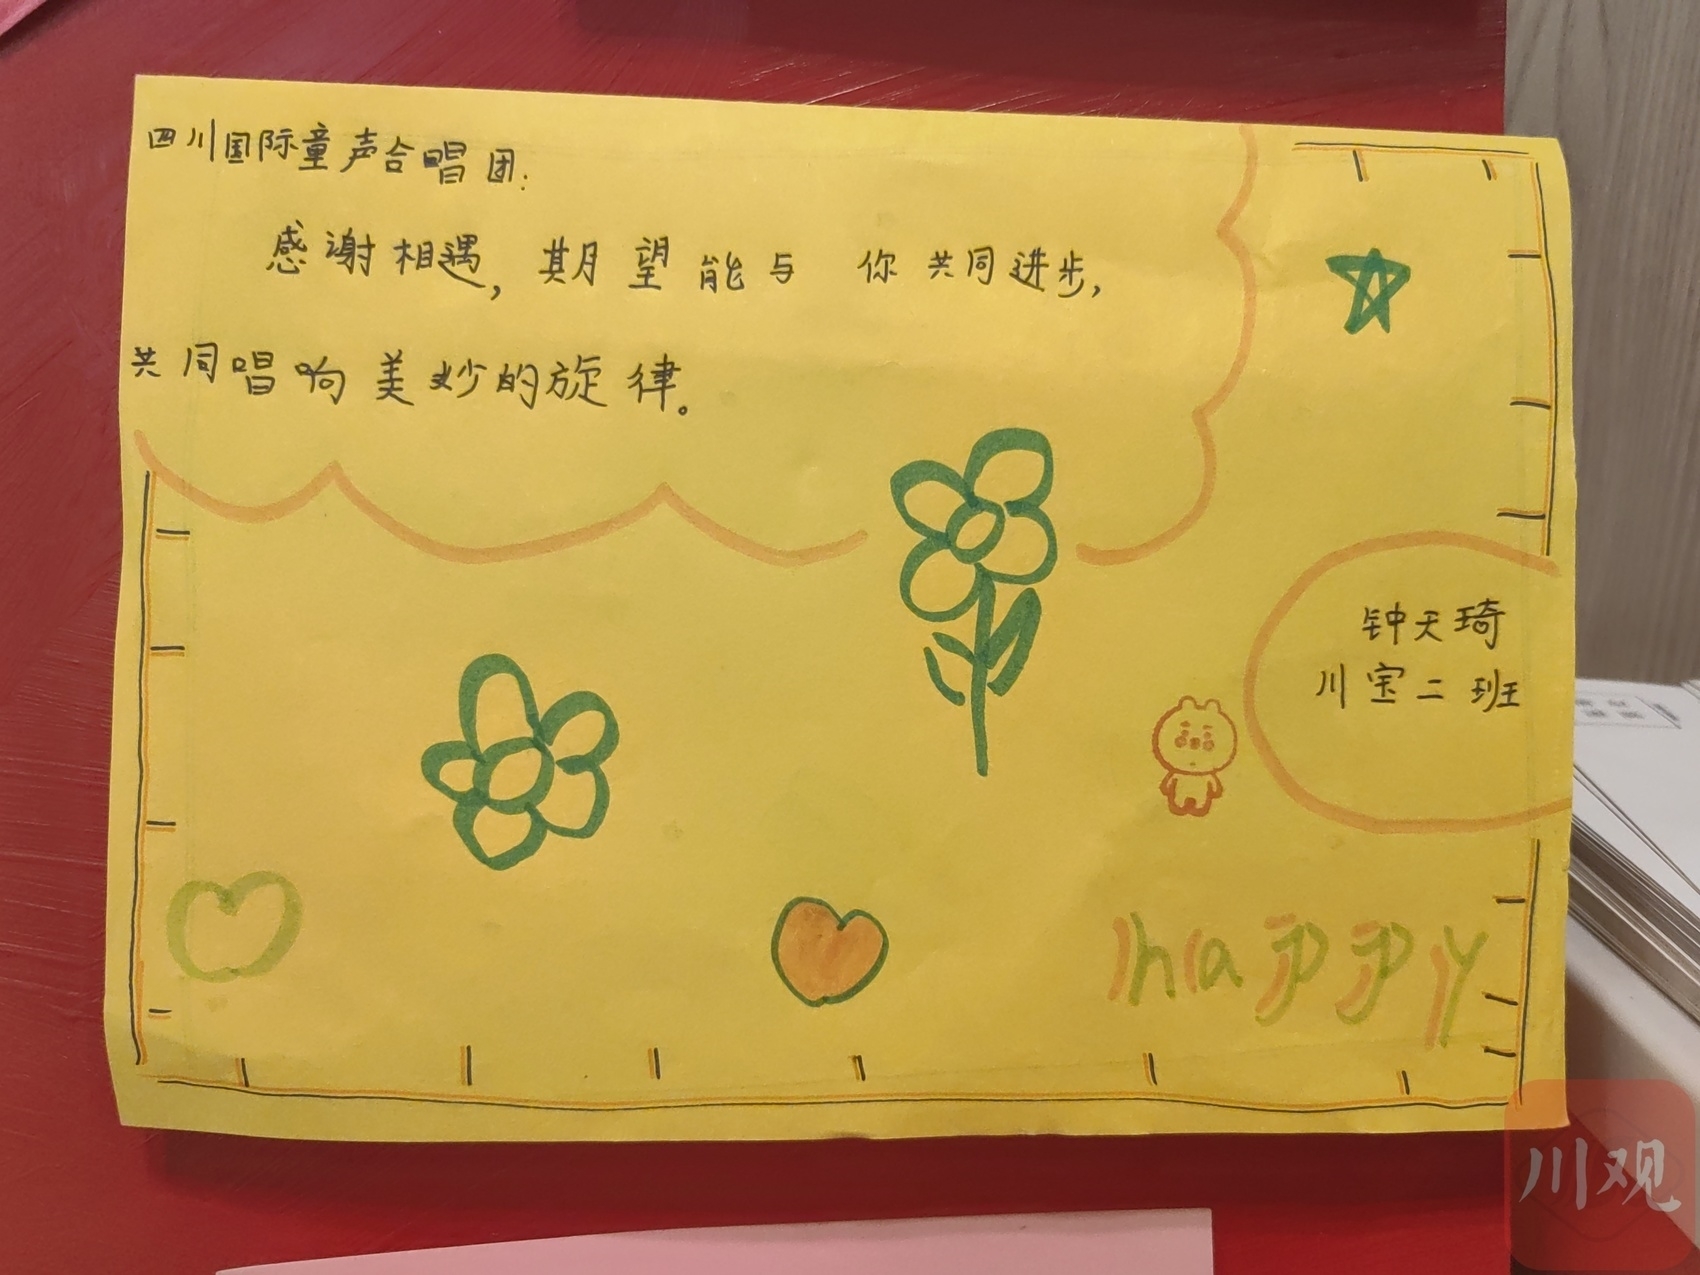 四川国际童声合唱团:
感谢相遇，期望能与 你共同进步，
共同唱响美妙的旋律。
钟天琦
川宝二班
happy
川观